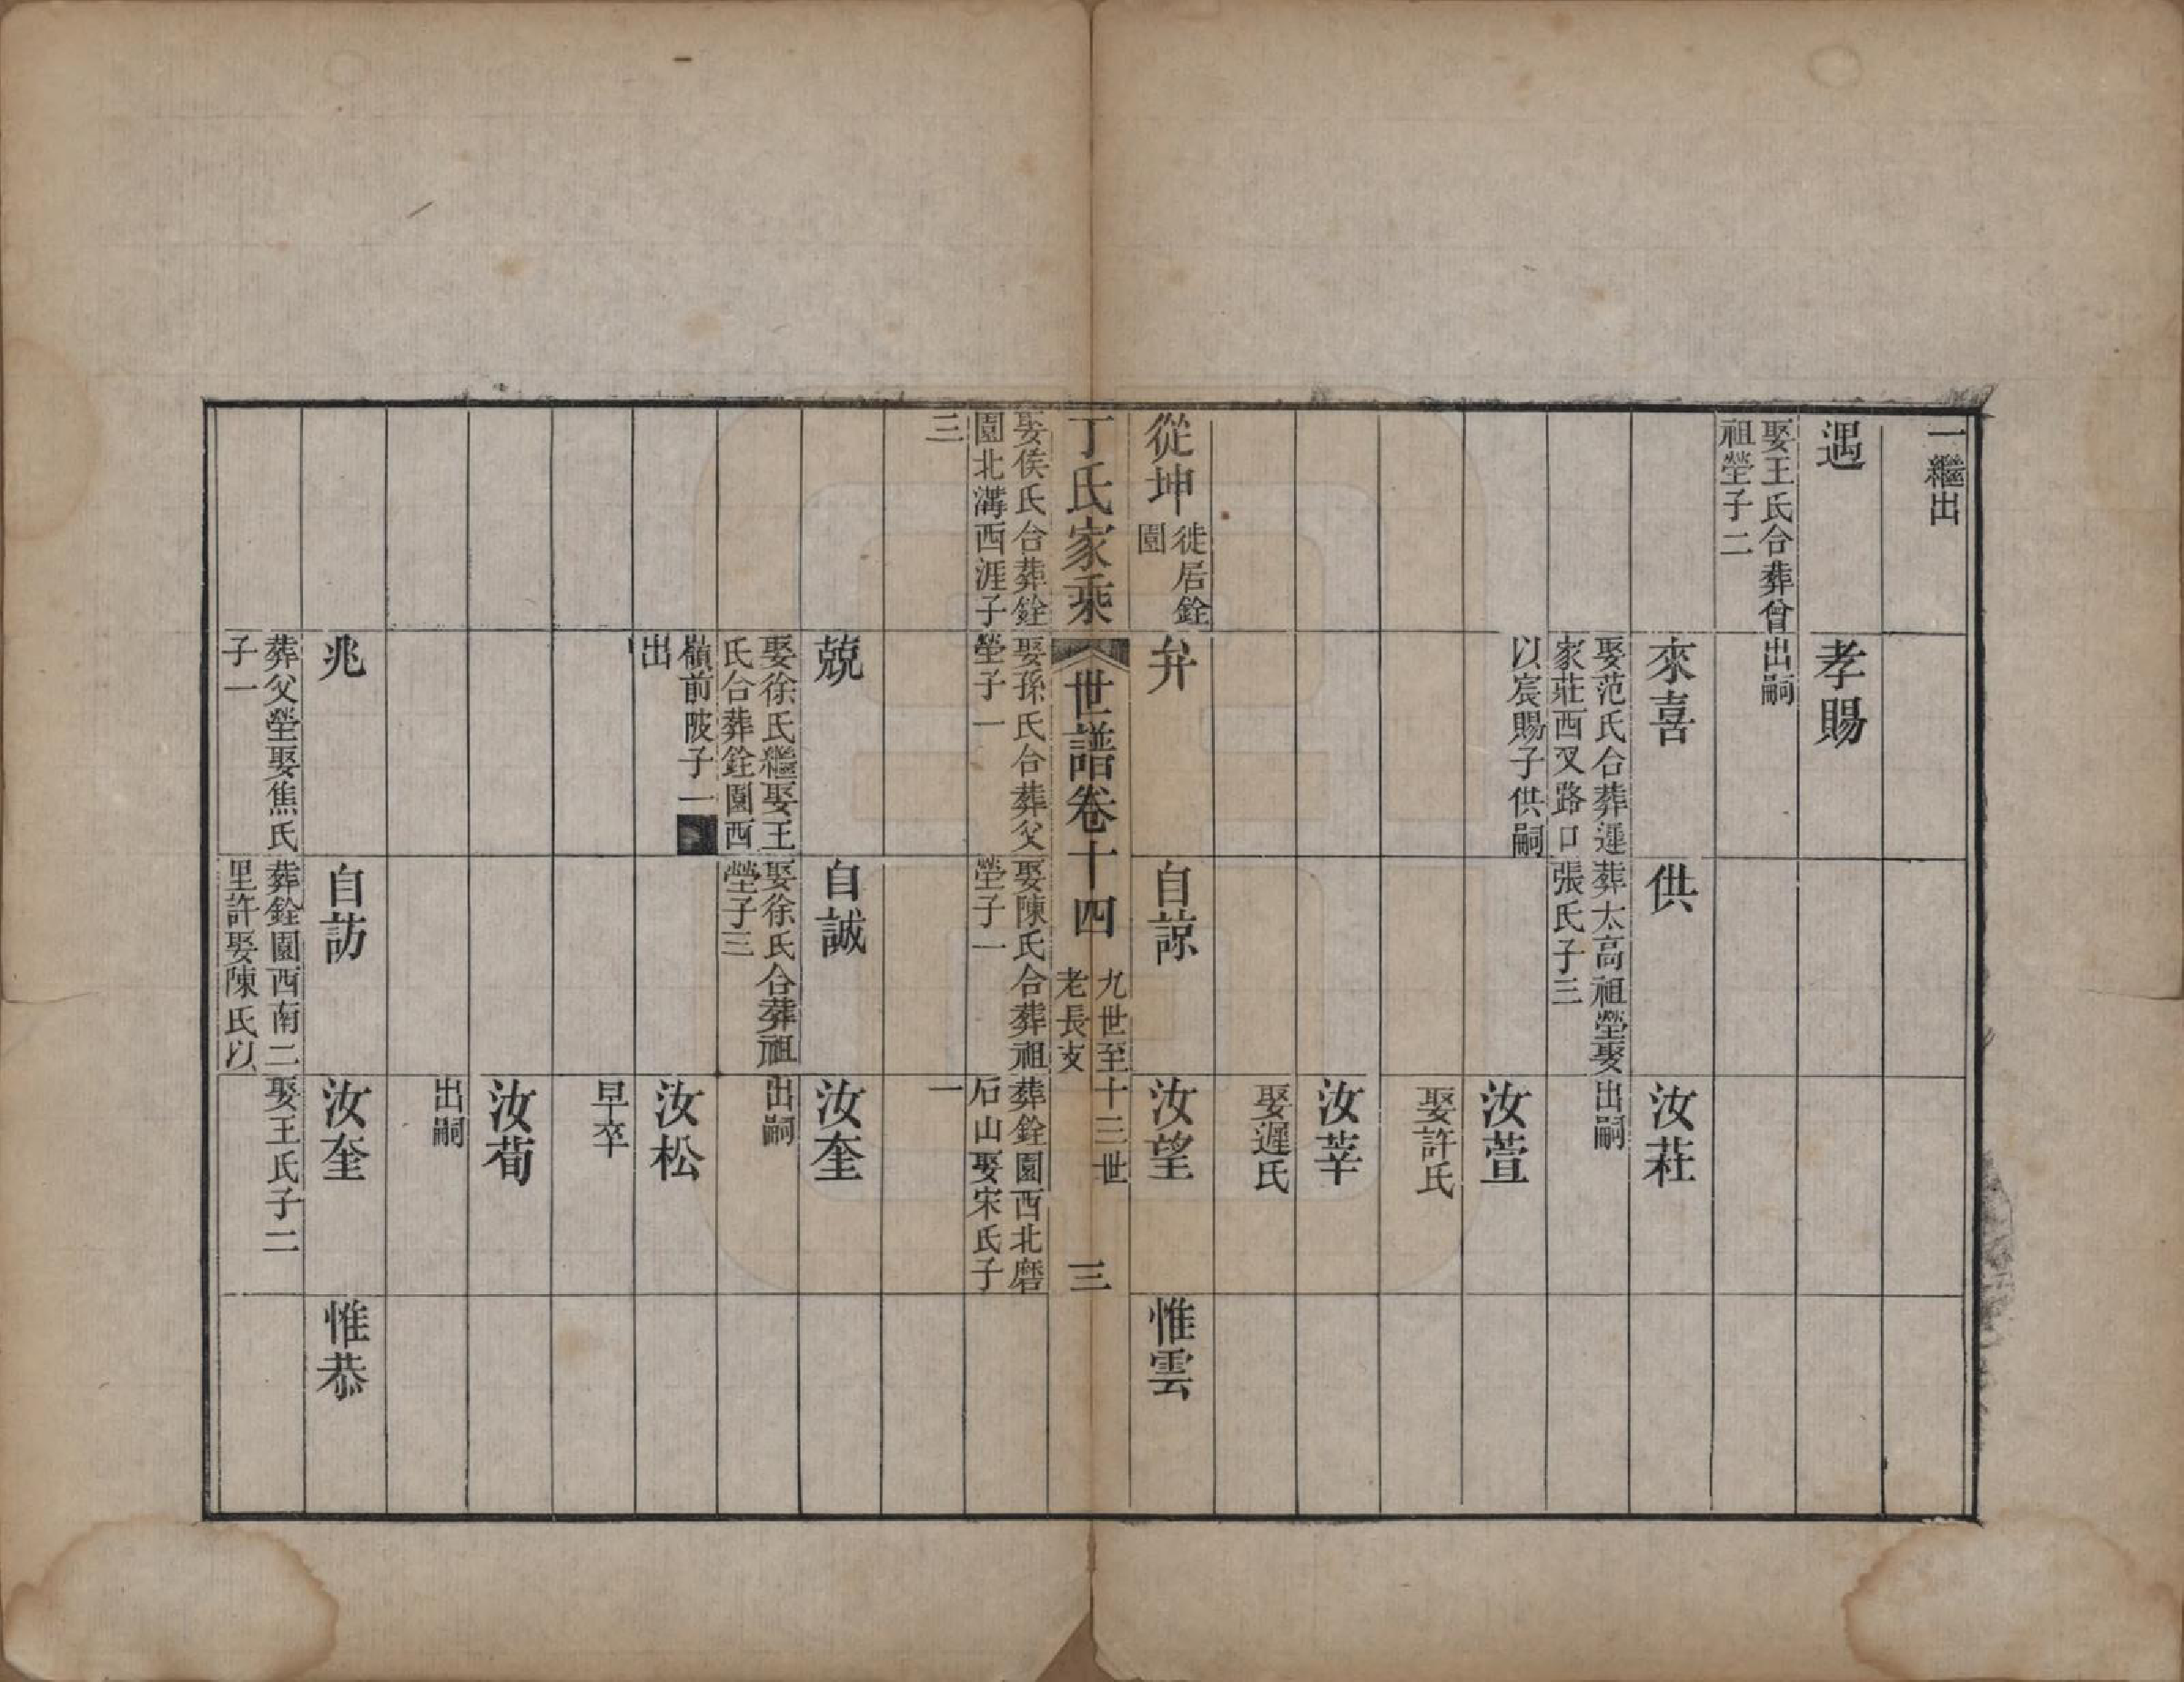 一繼出
遇
娶王氏合葬曾
祖塋子二
孝賜
出嗣
來喜
娶范氏合葬遲
家莊西叉路口
以宸賜子供嗣
供
葬太高祖塋娶
張氏子三
汝茬
出嗣
汝萱
娶許氏
汝莘
娶遲氏
從坤
徙居銓
園
弁
自諒
汝望
惟雲
丁氏家乘
世譜卷十四
九世至十三世
老長支
三
娶侯氏合葬銓
園北溝西涯子
三
娶孫氏合葬父
塋子一
娶陳氏合葬祖
塋子一
葬銓園西北磨
石山娶宋氏子
一
兢
娶徐氏繼娶王
氏合葬銓園西
嶺前陂子一
出
自誠
娶徐氏合葬祖
塋子三
汝奎
出嗣
汝松
早卒
汝荀
出嗣
兆
葬父塋娶焦氏
子一
自訪
葬銓園西南二
里許娶陳氏以
汝奎
娶王氏子二
惟恭